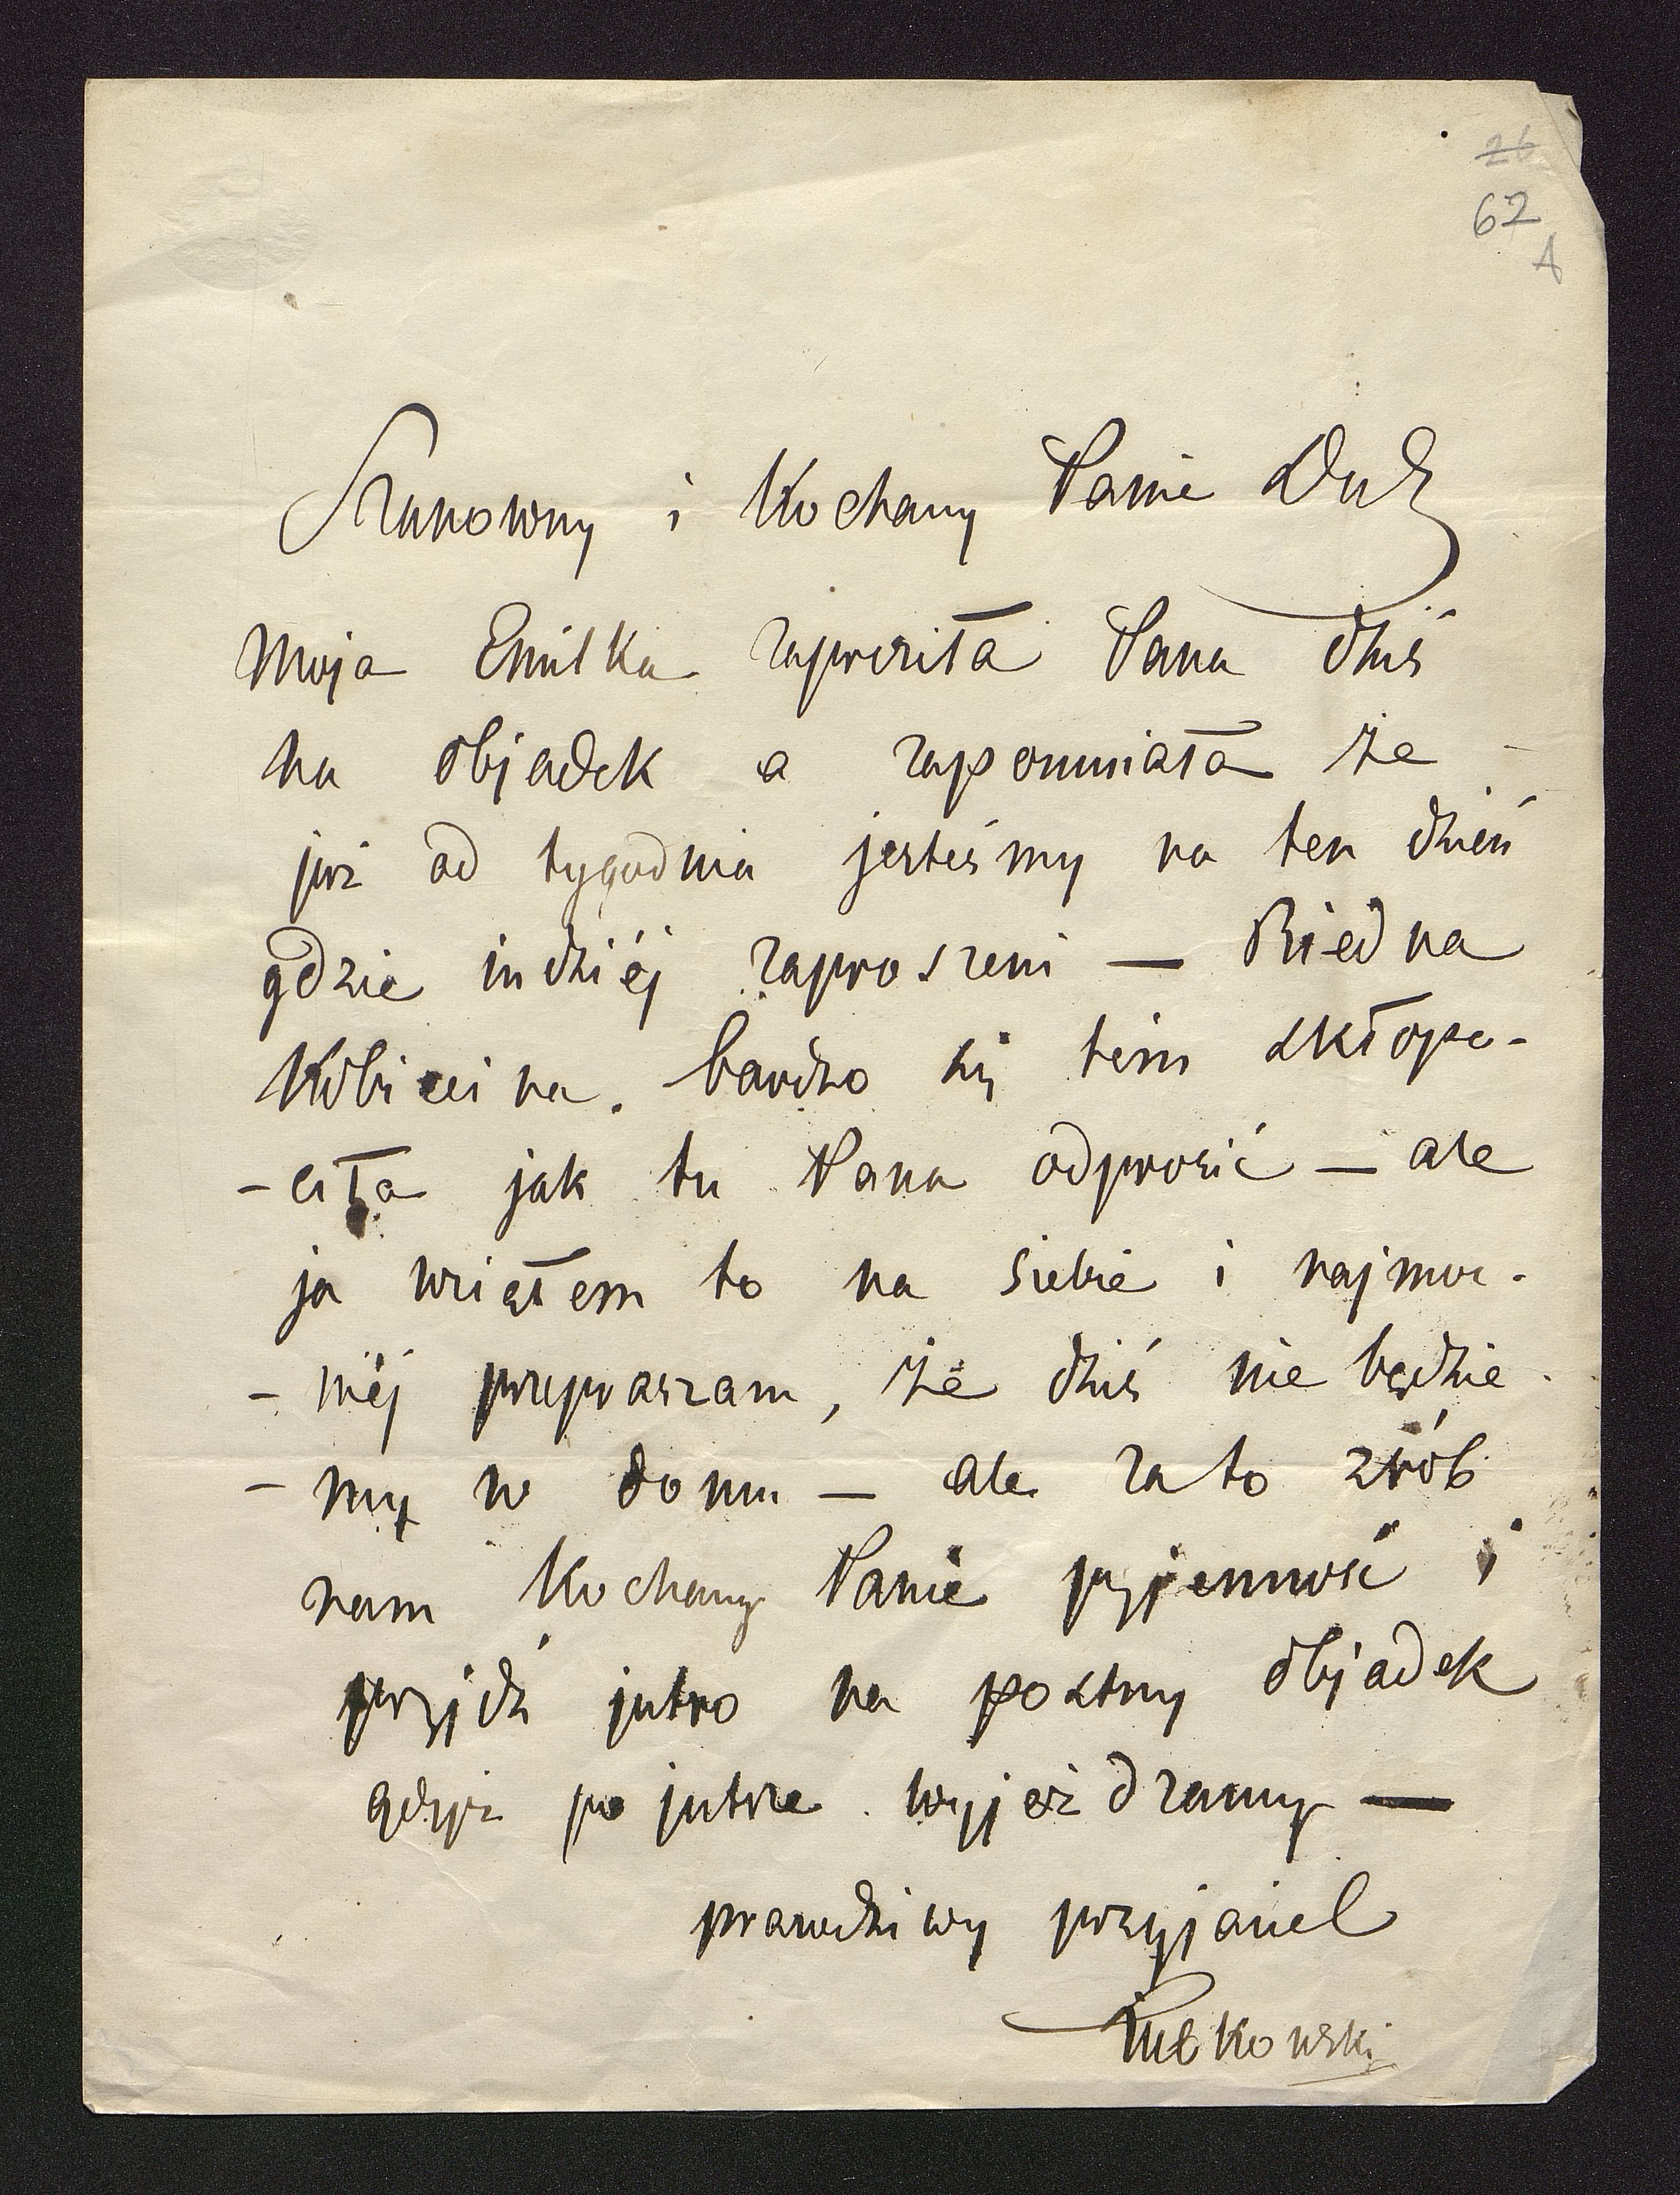 26
62
A
Szanowny i Kochany Panie
Moja Emilka zaprosiła Pana dziś
na objadek a zapomniała że
już od tygodnia jesteśmy na ten dzień
gdzie indziéj zaproszeni — Biedna
Kobiecina. bardzo się tém zkłopo-
-ciła jak tu Pana odprosić — ale
ja wziąłem to na siebie i najmoc-
-niéj przepraszam, że dziś nie będzie-
-my w domu — ale za to zrób
nam Kochany Panie przyjemność i
przyjdź jutro na postny objadek
gdyż po jutrze wyjeżdzamy —
prawdziwy przyjaciel